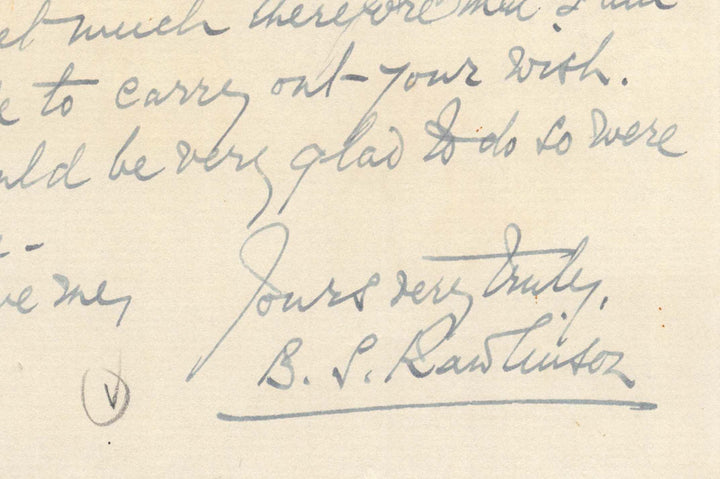 much therefore that I am
to carry out your wish.
be very glad to do so were
me, Yours very truly,
B. S. Rawlinson
V